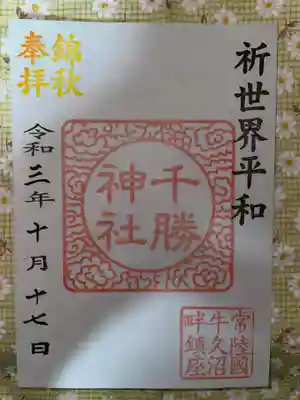 祈世界平和
千勝
神社
常陸國
牛久沼
畔鎮座
錦秋
奉拝
令和三年十月十七日